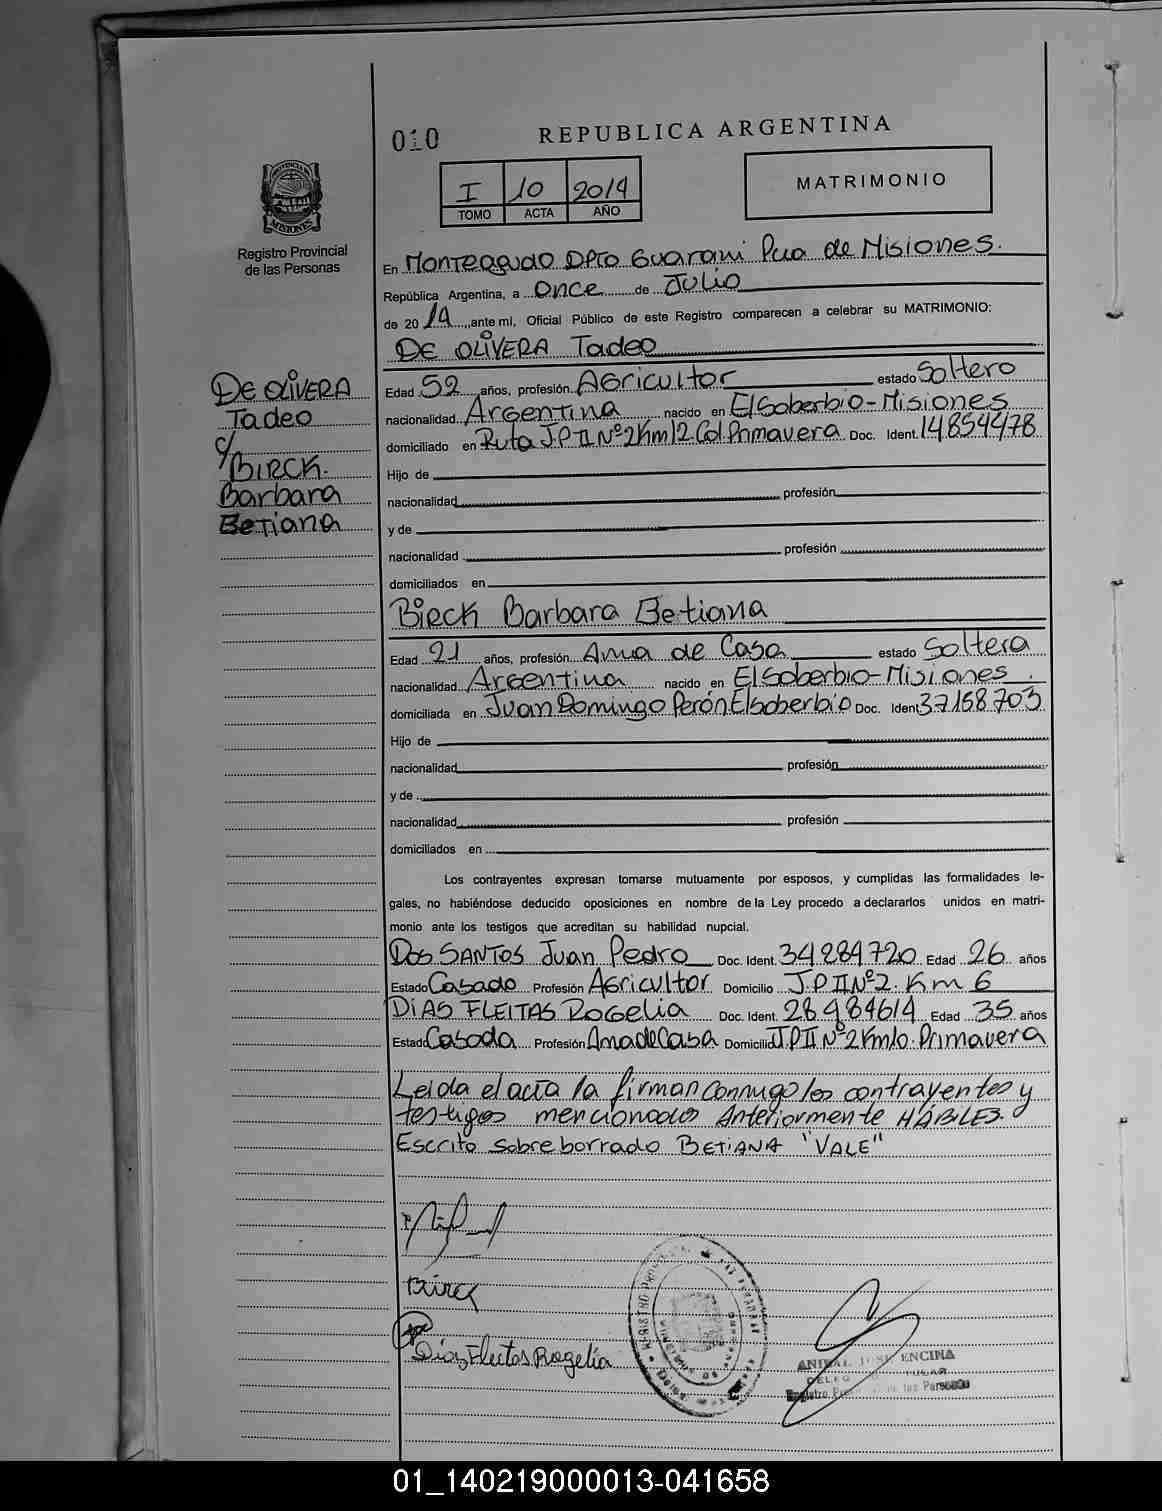 010
REPUBLICA ARGENTINA
I 10 2014
TOMO ACTA AÑO
MATRIMONIO
PROVINCIA DE MISIONES
Registro Provincial
de las Personas
En Monteagudo Dpto Guarani Pcia de Misiones.
República Argentina, a Once de Julio
de 2014, ante mí, Oficial Público de este Registro comparecen a celebrar su MATRIMONIO:
DE OLIVERA Tadeo
DE OLIVERA
Tadeo
c/
BIRCK.
Barbara
Betiana
Edad 52 años, profesión Agricultor estado Soltero
nacionalidad Argentina nacido en El Soberbio - Misiones
domiciliado en Ruta J.P II Nº 2 Km 12 Col. Primavera Doc. Ident. 14854478
Hijo de
nacionalidad profesión
y de
nacionalidad profesión
domiciliados en
Birck Barbara Betiana
Edad 21 años, profesión Ama de Casa estado Soltera
nacionalidad Argentina nacido en El Soberbio - Misiones.
domiciliada en Juan Domingo Perón El Soberbio Doc. Ident 37158703
Hijo de
nacionalidad profesión
y de
nacionalidad profesión
domiciliados en
Los contrayentes expresan tomarse mutuamente por esposos, y cumplidas las formalidades le-
gales, no habiéndose deducido oposiciones en nombre de la Ley procedo a declararlos unidos en matri-
monio ante los testigos que acreditan su habilidad nupcial.
DOS SANTOS Juan Pedro Doc. Ident. 34284720 Edad 26 años
Estado Casado Profesión Agricultor Domicilio J.P II Nº 2. Km 6
DIAS FLEITAS ROGELIA Doc. Ident. 28984614 Edad 35 años
Estado Casada Profesión Ama de Casa Domicilio J.P II Nº 2 Km 10. Primavera
Leida el acta la firman conmigo los contrayentes y
testigos mencionados Anteriormente HÁBILES.
Escrito sobre borrado BETIANA "VALE"
Birck
Dias Fleitas Rogelia
ANIBAL JOSE ENCINA
Registro de las Personas
01_140219000013-041658